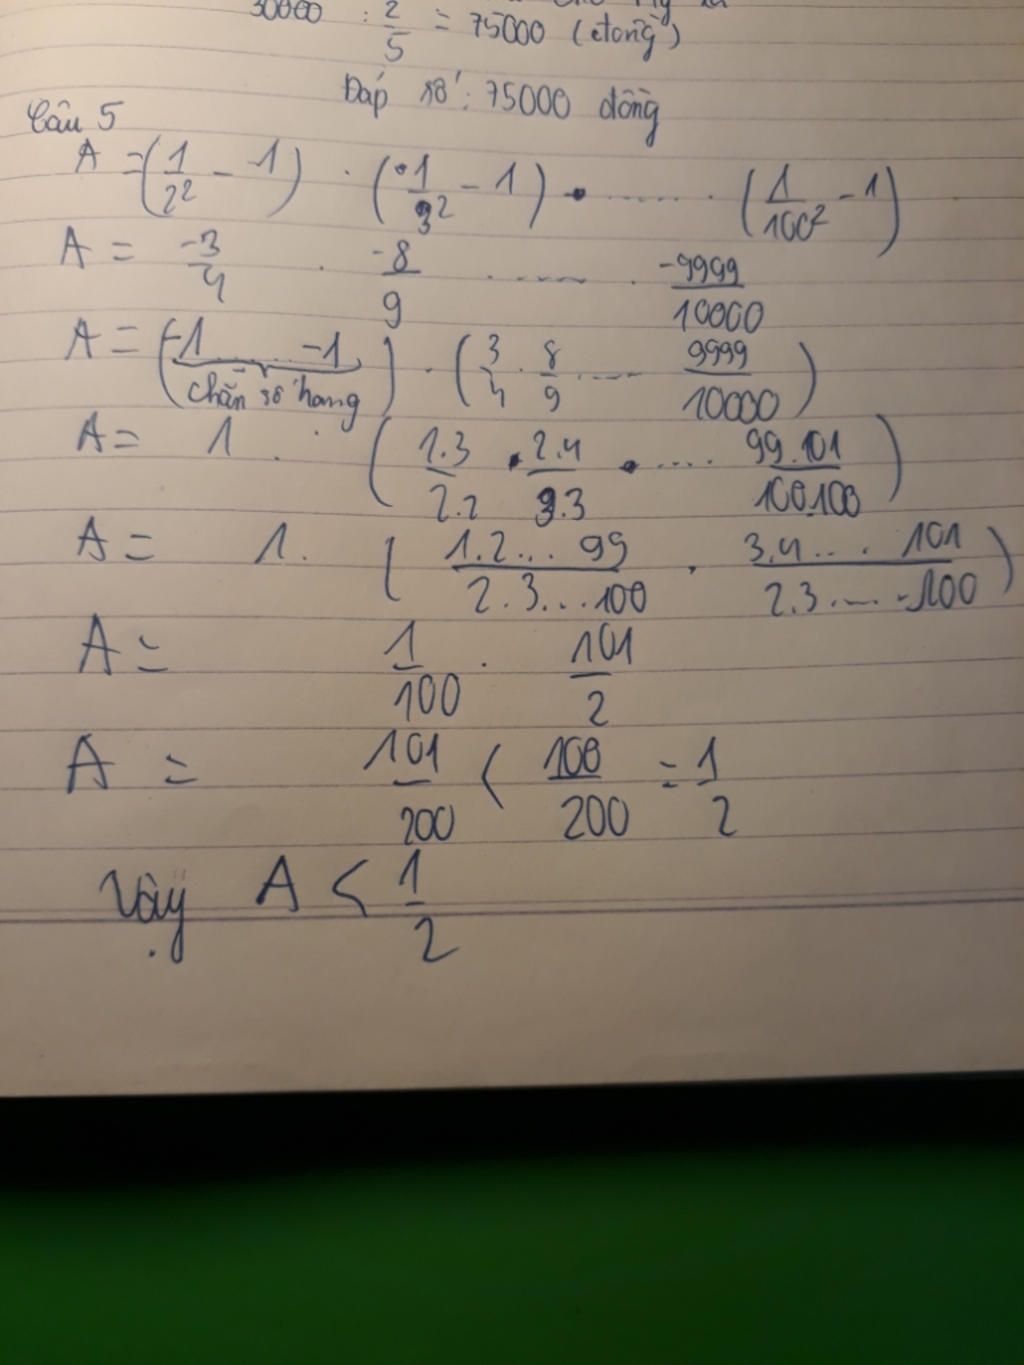 30000 : 2/5 = 75000 (đồng)
Đáp số: 75000 đồng
Câu 5
A = (1/2² - 1) . (1/3² - 1) . ....... (1/100² - 1)
A = -3/4 . -8/9 . ...... . -9999/10000
A = (-1 ... -1) . (3/4 . 8/9 . .... 9999/10000)
chẵn số hạng
A = 1 . (1.3/2.2 . 2.4/3.3 . .... 99.101/100.100)
A = 1. (1.2... 99/2.3...100 . 3.4... 101/2.3.....100)
A = 1/100 . 101/2
A = 101/200 < 100/200 = 1/2
Vậy A < 1/2